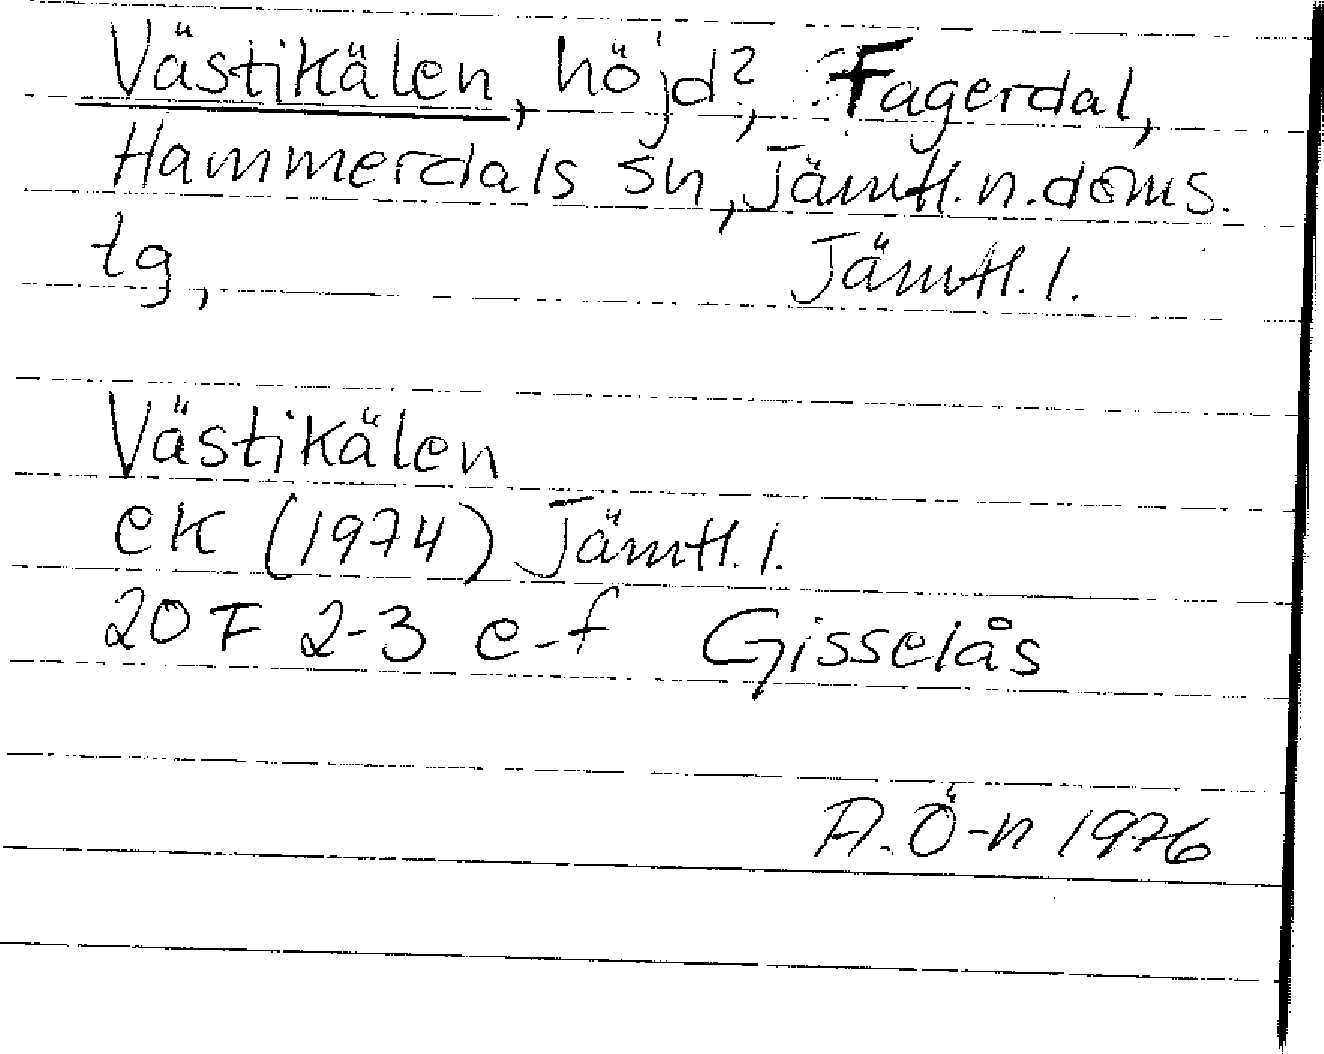 Västikälen, höjd?, Fagerdal,
Hammerdals sn, Jämtl. n. doms.
tg, Jämtl. l.
Västikälen
ek (1974) Jämtl. l.
20 F 2-3 e-f Gisselås
A. Ö-n 1976